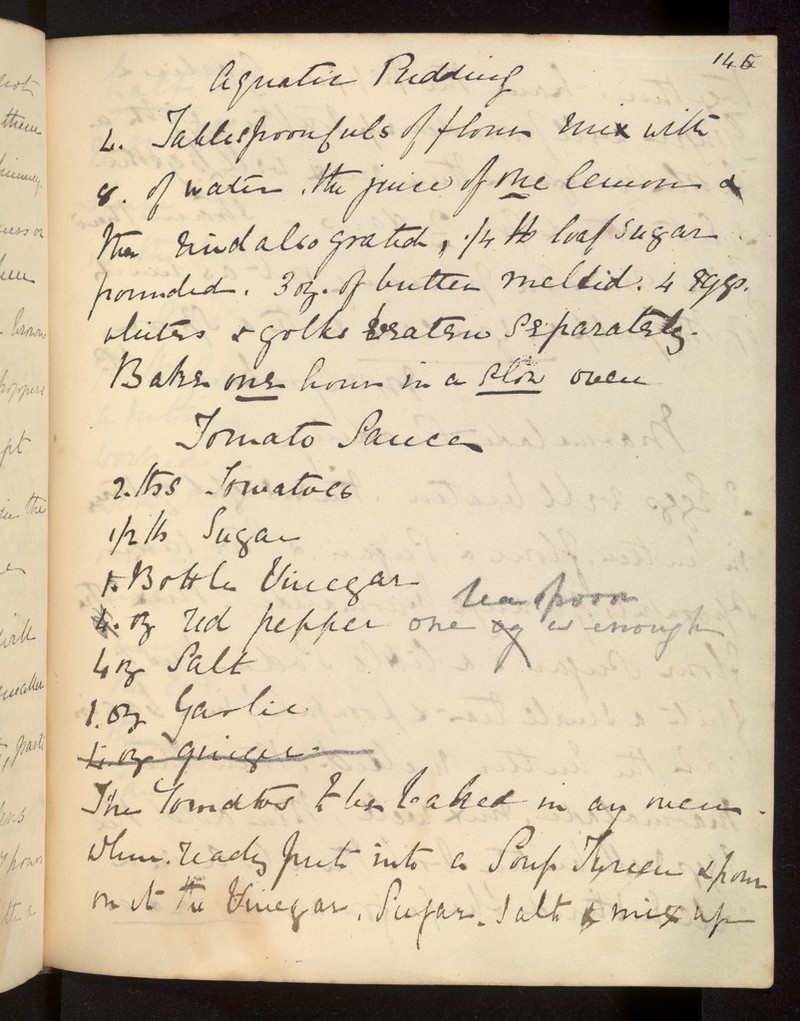 145
Aquatic Pudding
4. Tablespoonfuls of flour mix with
8. of water, the juice of one lemon &
the rind also grated, 1/4 lb loaf sugar
pounded. 3 oz. of butter melted. 4 eggs.
whites & yolks beaten separately.
Bake one hour in a slow oven
Tomato Sauce
2. lbs Tomatoes
1/2 lb Sugar
1. Bottle Vinegar
teaspoon
4. oz red pepper one oz is enough
4 oz Salt
1. oz Garlic
4. oz ginger
The Tomatos to be baked in an oven.
When ready put into a Soup Tureen & pour
on it the Vinegar, Sugar, Salt & mix up
not
them
the